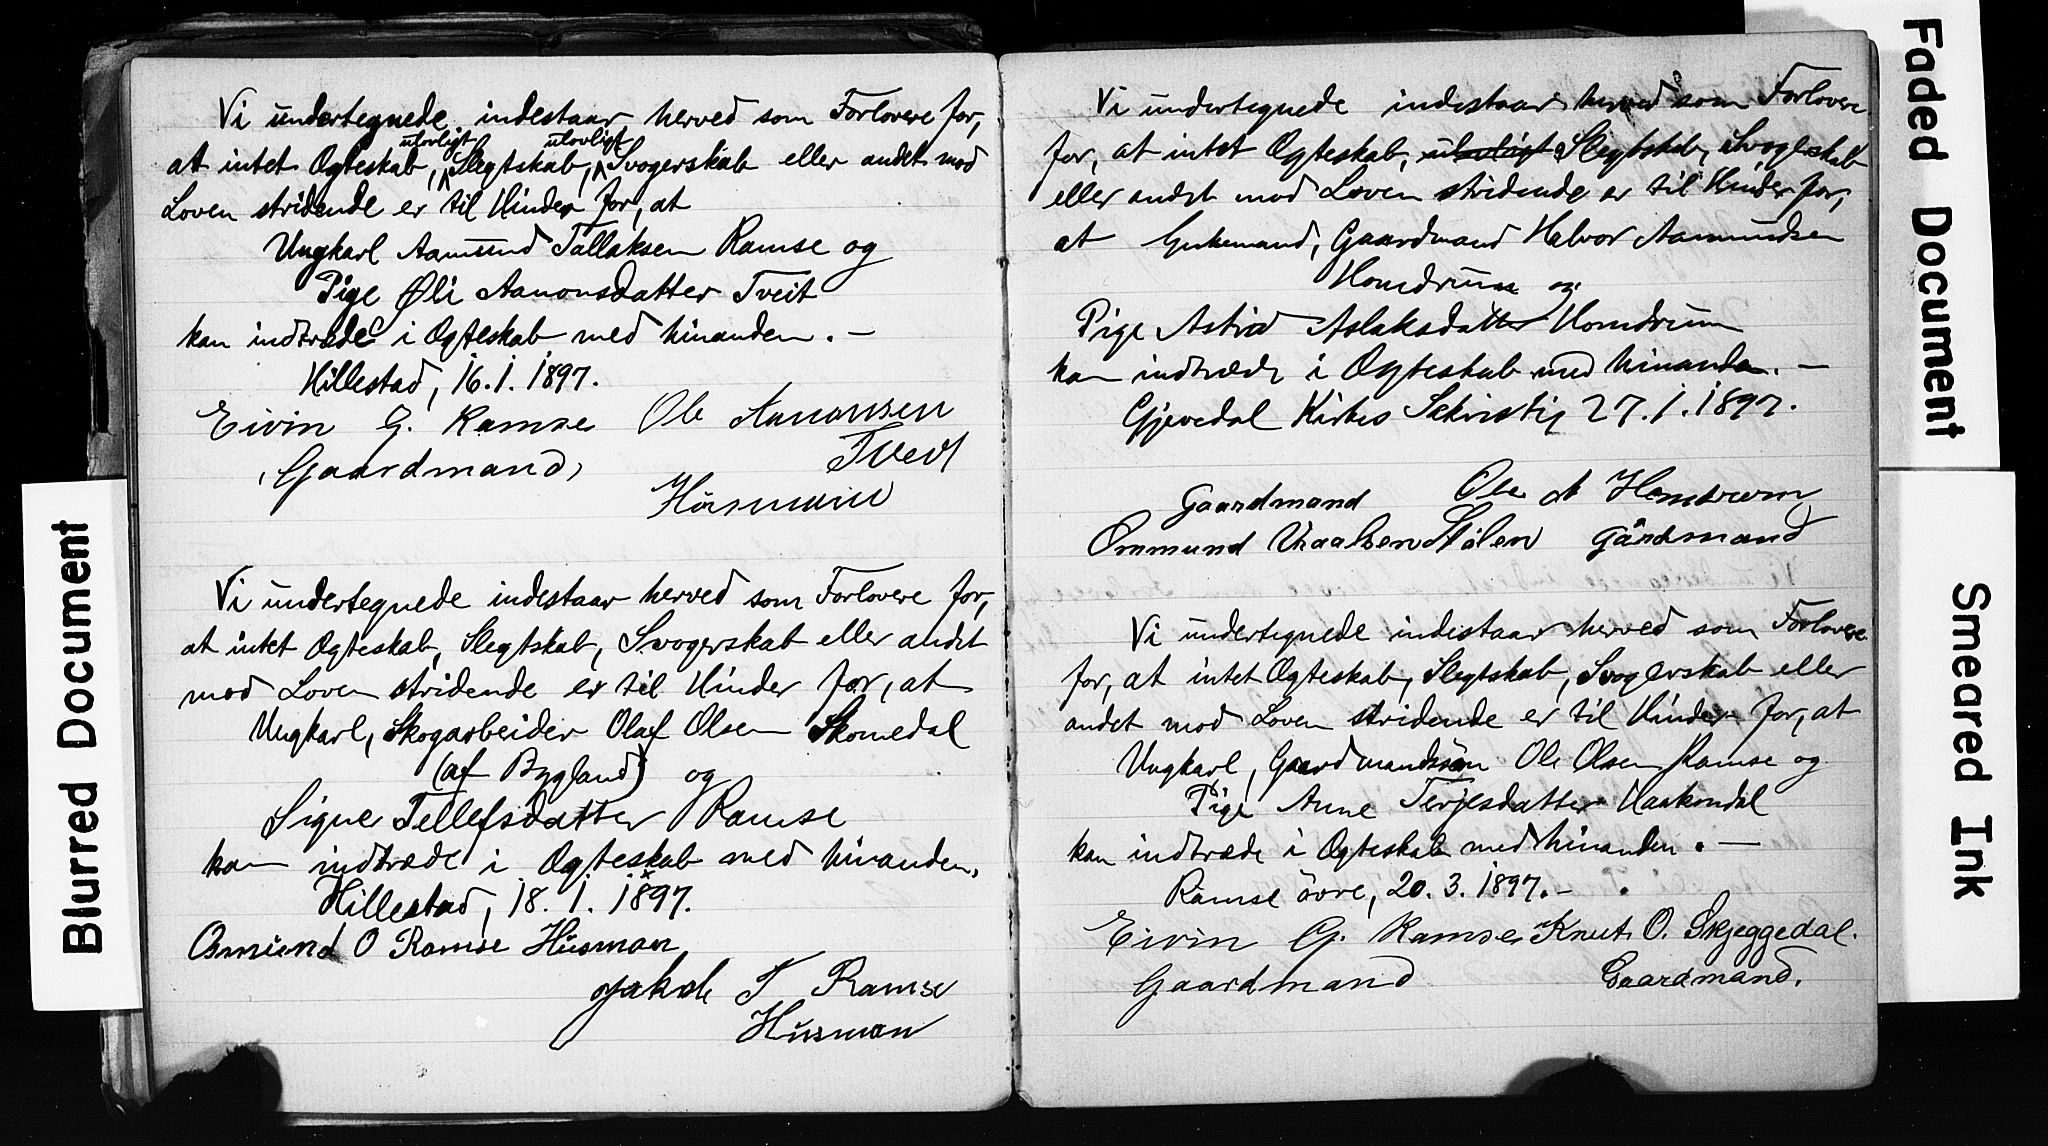 Vi undertegnede indestaar herved som Forlovere for,
at intet Ogteskab, ulovligt Slegtskab, ulovligt Svogerskab eller andet mod
Loven stridende er til Hinder for, at
Ungkarl Aamund Tallaksen Ramse og
Pige Øli Aanonsdatter Tveit
kan indtræde i Ogteskab med hinanden. —
Hillestad, 16.1.1897.
Eivin G. Ramse Ole Aanonsen
Gaardmand, Tvedt
Husmann
Vi undertegnede indestaar herved som Forlovere for,
at intet Ogteskab, Slegtskab, Svogerskab eller andet
mod Loven stridende er til Hinder for, at
Ungkarl, Skogarbeider Olaf Olsen Skomedal
(af Bygland) og
Signe Tellefsdatter Ramse
kan indtræde i Ogteskab med hinanden.
Hillestad, 18.1.1897.
Osmund O Ramse Husman
Jakob T Ramse
Husman
Vi undertegnede indestaar herved som Forlovere
for, at intet Ogteskab, ulovligt Slegtskab, Svogerskab
eller andet mod Loven stridende er til Hinder for,
at Enkemand, Gaardmand Halvor Aamundsen
Homdrum og
Pige Astrid Aslaksdatter Homdrum
kan indtræde i Ogteskab med hinanden. —
Gjevedal Kirkes Sakristig 27.1.1897.
Gaardmand Ole A Homdrum
Ommund Stålen Gårdmand
Vi undertegnede indestaar herved som Forlovere
for, at intet Ogteskab, Slegtskab, Svogerskab eller
andet mod Loven stridende er til Hinder for, at
Ungkarl, Gaardmandssøn Ole Olsen Ramse og
Pige Anne Terjesdatter Haakondal
kan indtræde i Ogteskab med hinanden. —
Ramse övre, 20.3.1897. —
Eivin G. Ramse Knut O. Skjeggedal.
Gaardmand Gaardmand.
Blurred Document
Faded Document
Smeared Ink